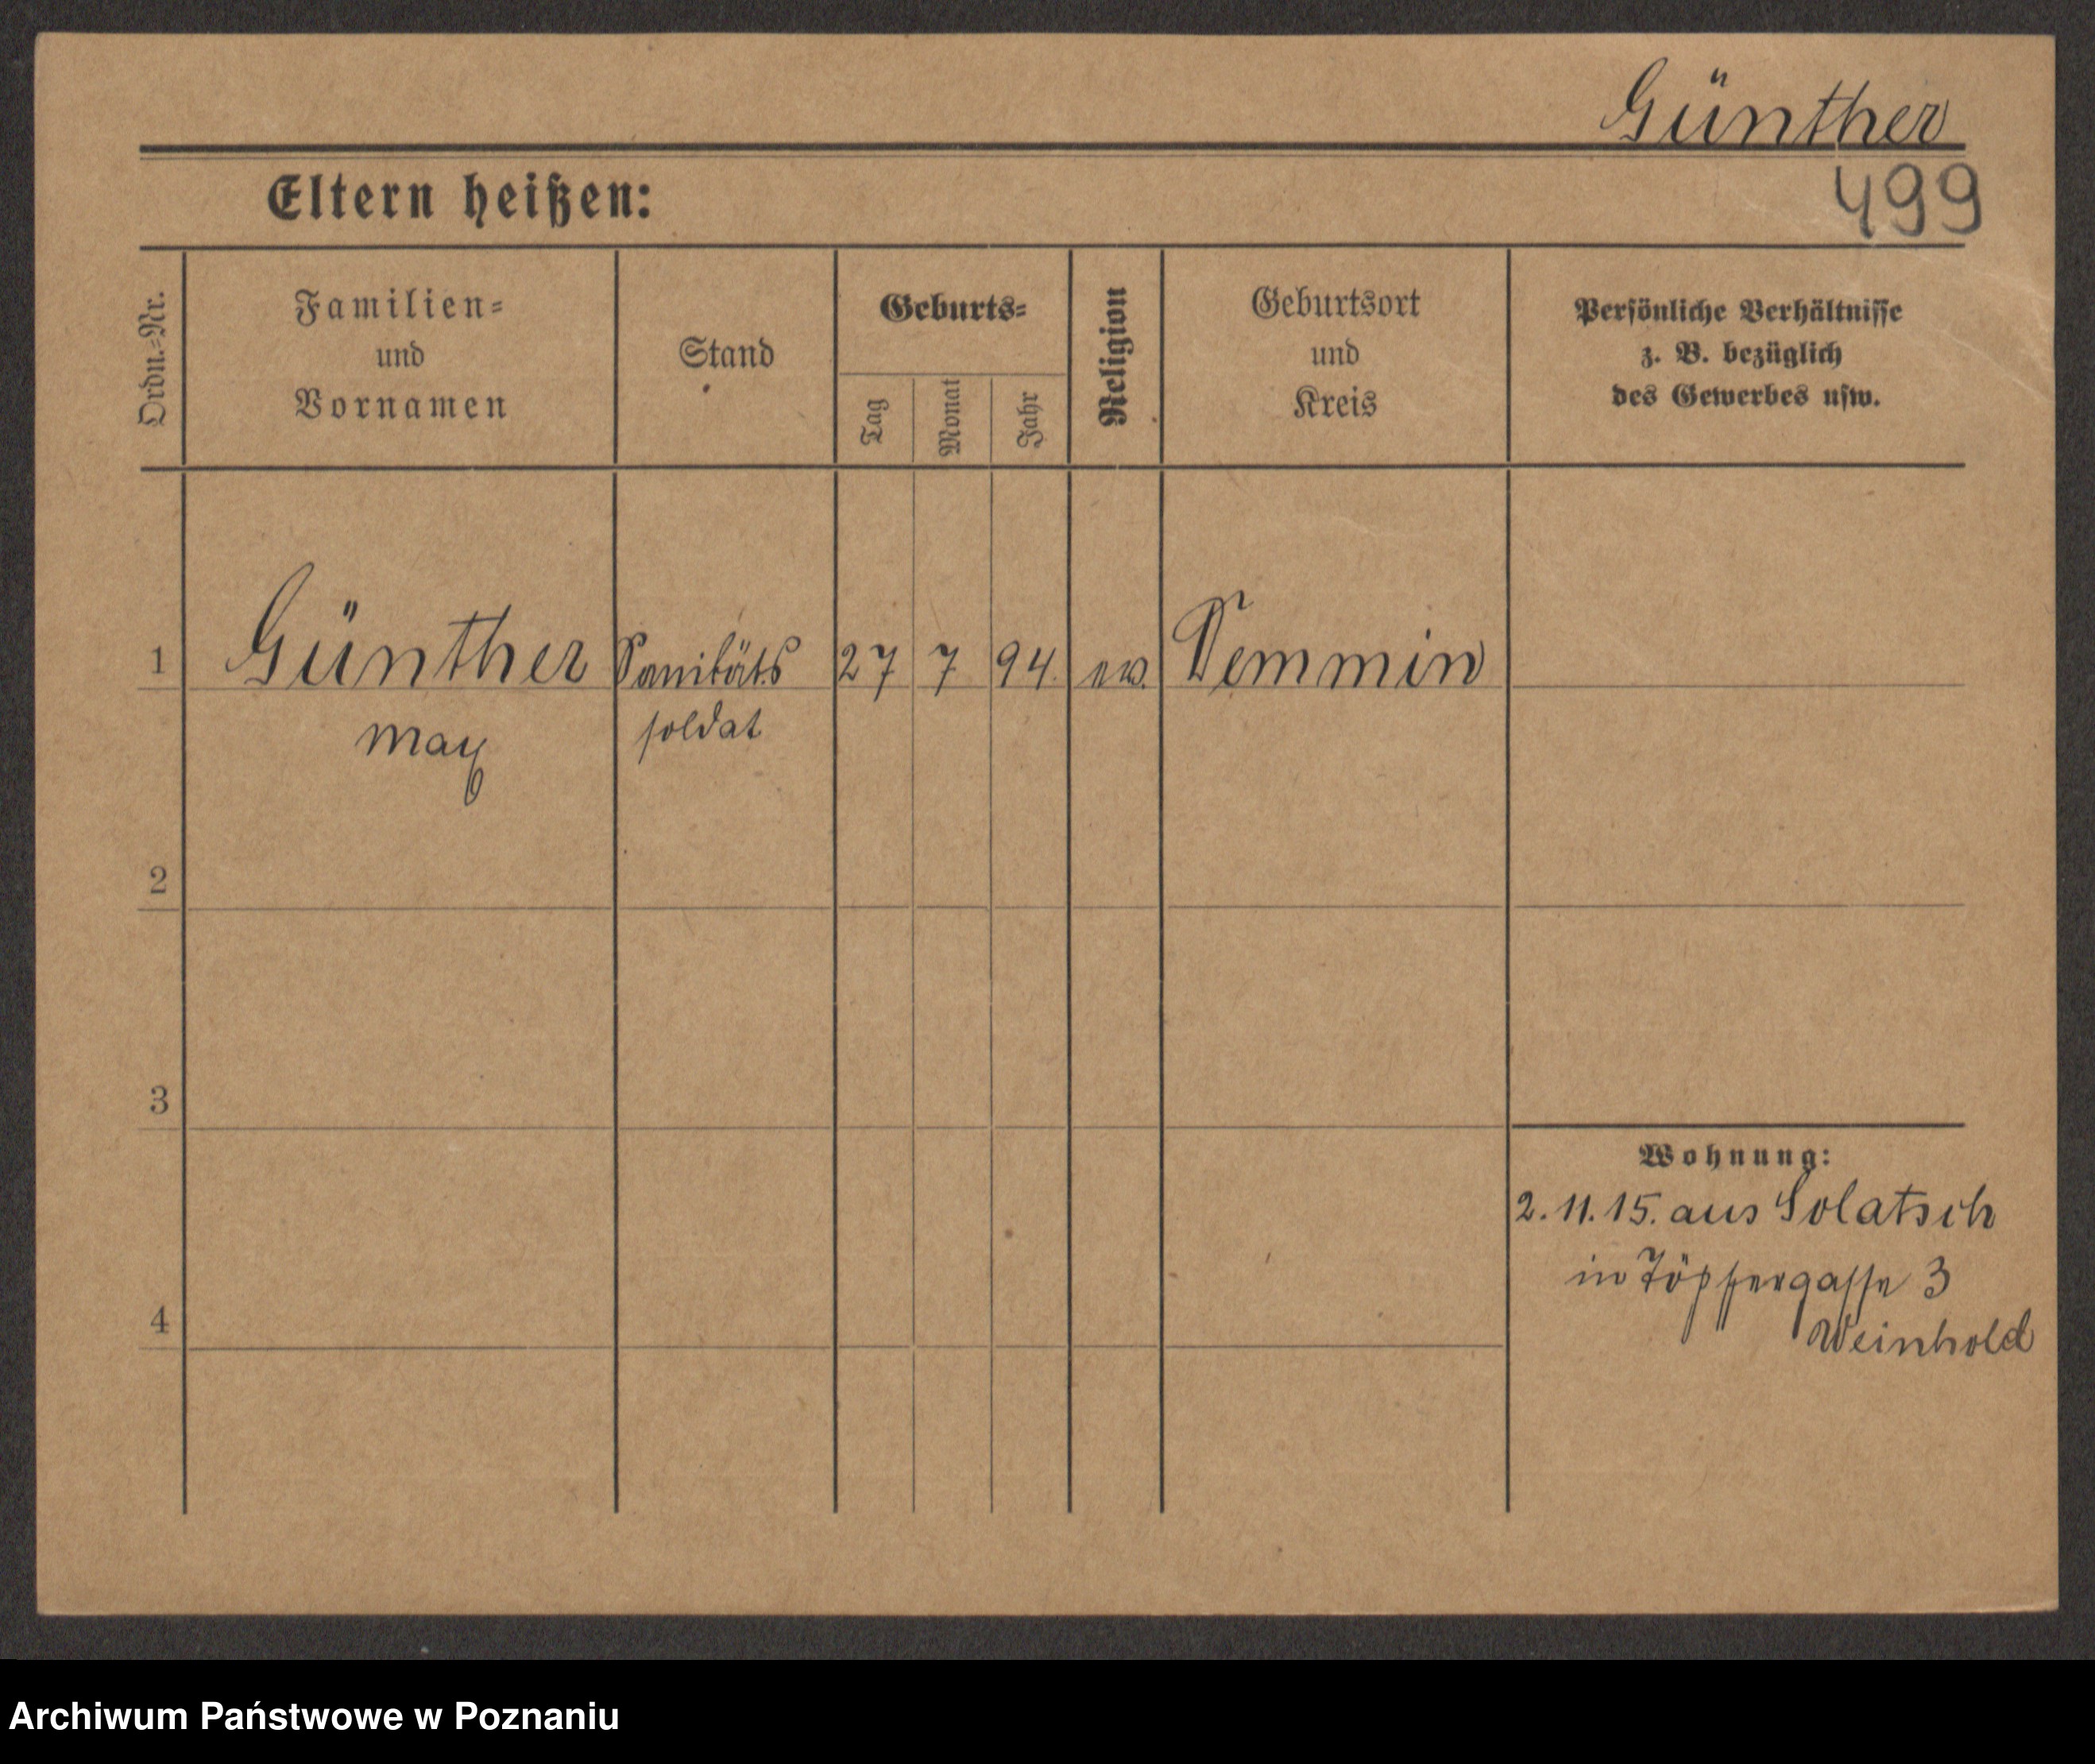 Günther
499
Eltern heißen:
Ordn.-Nr.
Familien-
und
Vornamen
Stand
Geburts-
Tag
Monat
Jahr
Religion
Geburtsort
und
Kreis
Persönliche Verhältnisse
z. B. bezüglich
des Gewerbes usw.
1 Günther Sanitäts 27 7 94. ev. Demmin
Max soldat
2
3
Wohnung:
2. 11. 15. aus Solatsch
in Töpfergasse 3
4
Weinhold
Archiwum Państwowe w Poznaniu